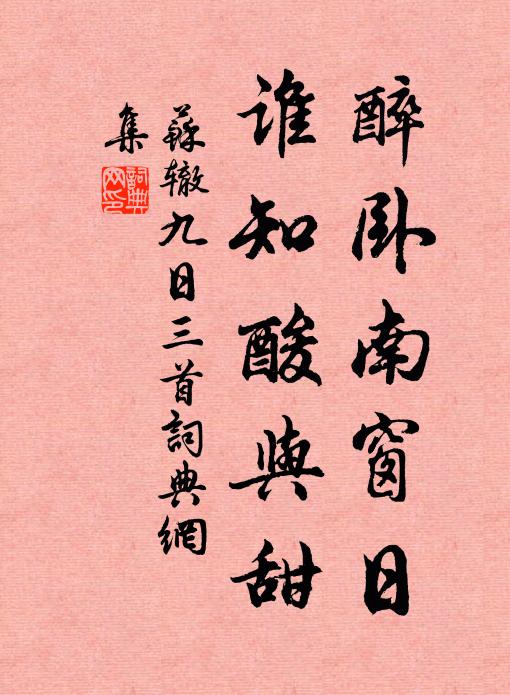 醉卧南窗日
谁知酸與甜
蘇辙九日三首詞典網
集
詞典网印